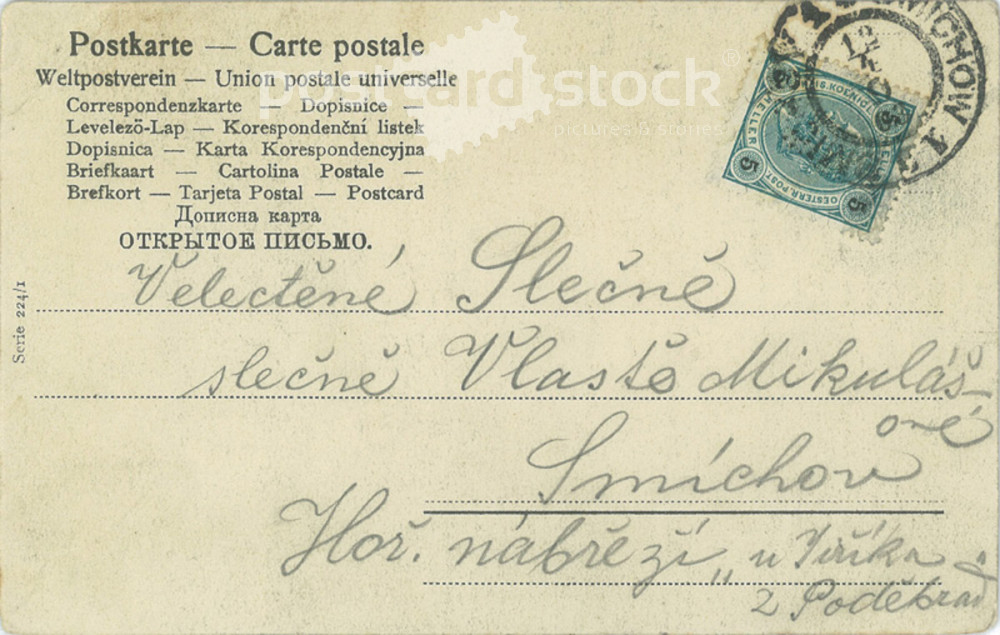 Postkarte — Carte postale
Weltpostverein — Union postale universelle
Correspondenzkarte — Dopisnice —
Levelező-Lap — Korespondenční listek
Dopisnica — Karta Korespondencyjna
Briefkaart — Cartolina Postale —
Brefkort — Tarjeta Postal — Postcard
Дописна карта
ОТКРЫТОЕ ПИСЬМО.
postcard stock
pictures & stories
SMICHOW 1
KOENIGL.
HELLER
5
5
5
OESTERR. POST.
Serie 224/1
Velectěné Slečně
slečně Vlastě Mikuláš-
ové
Smíchov
Hoř. nábřeží „u Jiříka
z Poděbrad"